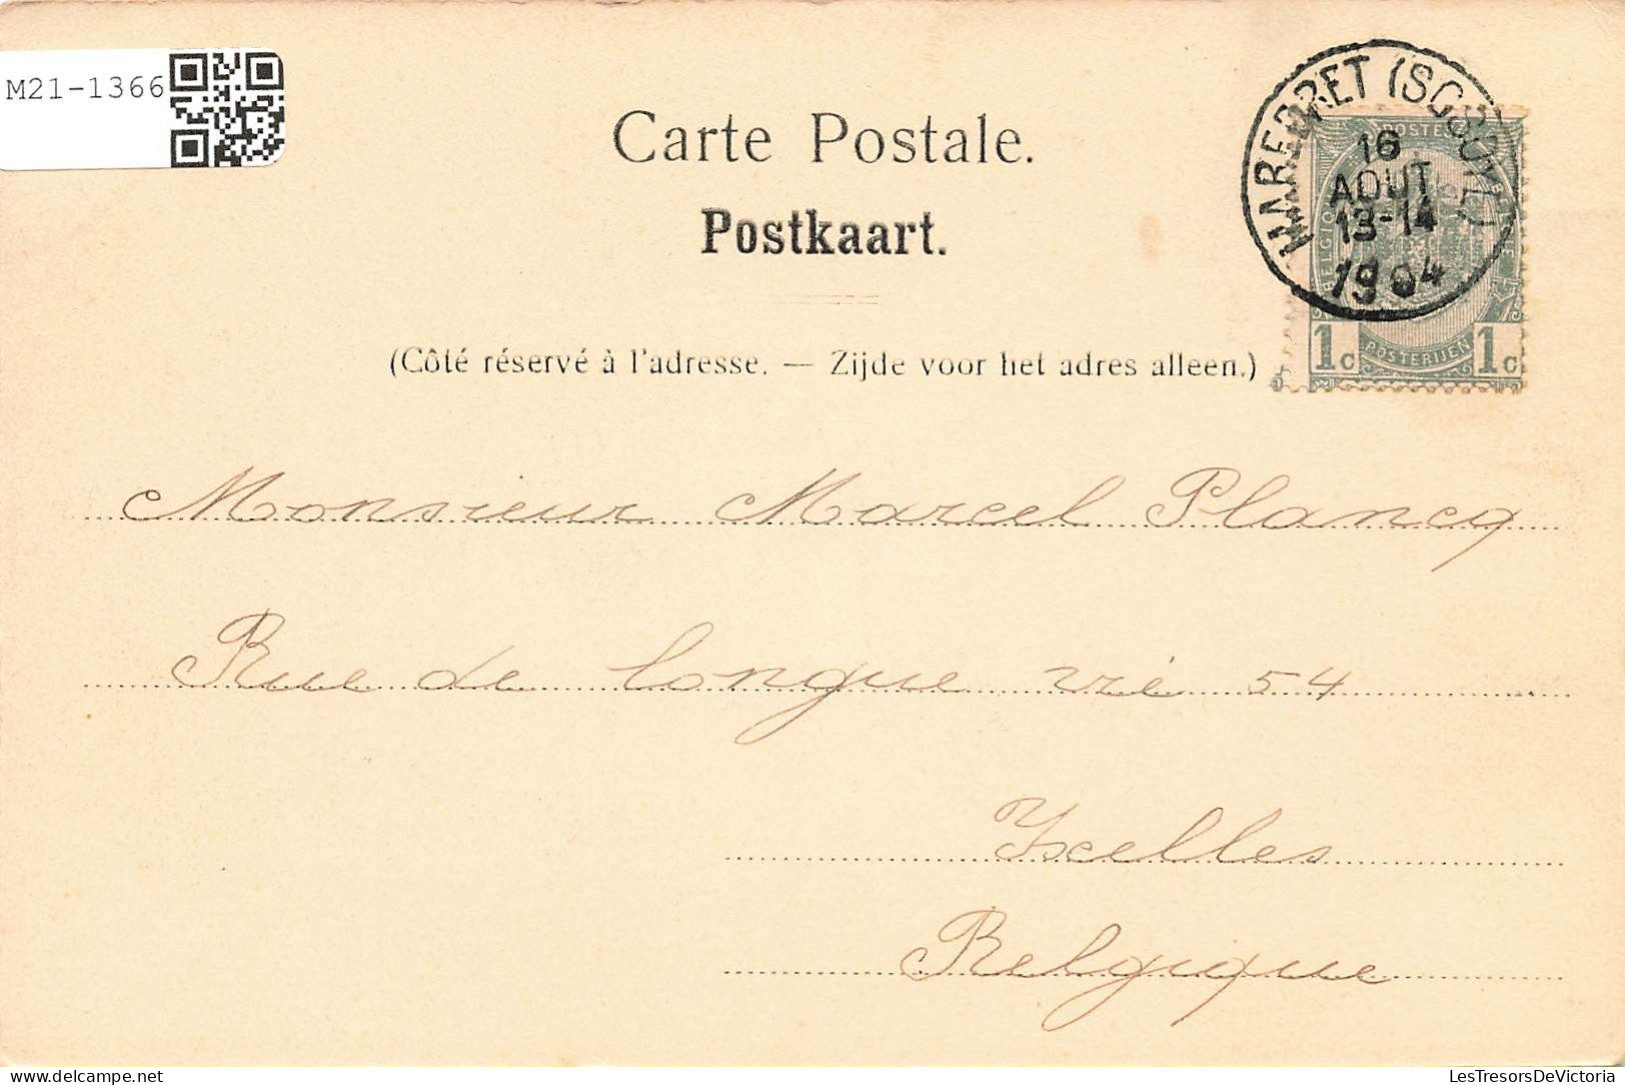 M21-1366
Carte Postale.
Postkaart.
(Côté réservé à l'adresse. — Zijde voor het adres alleen.)
MAREDRET (SOSOYE)
16
AOUT
13-14
1904
POSTERIJEN
1c 1c
Monsieur Marcel Plancq
Rue de longue vie 54
Ixelles
Belgique
LesTresorsDeVictoria